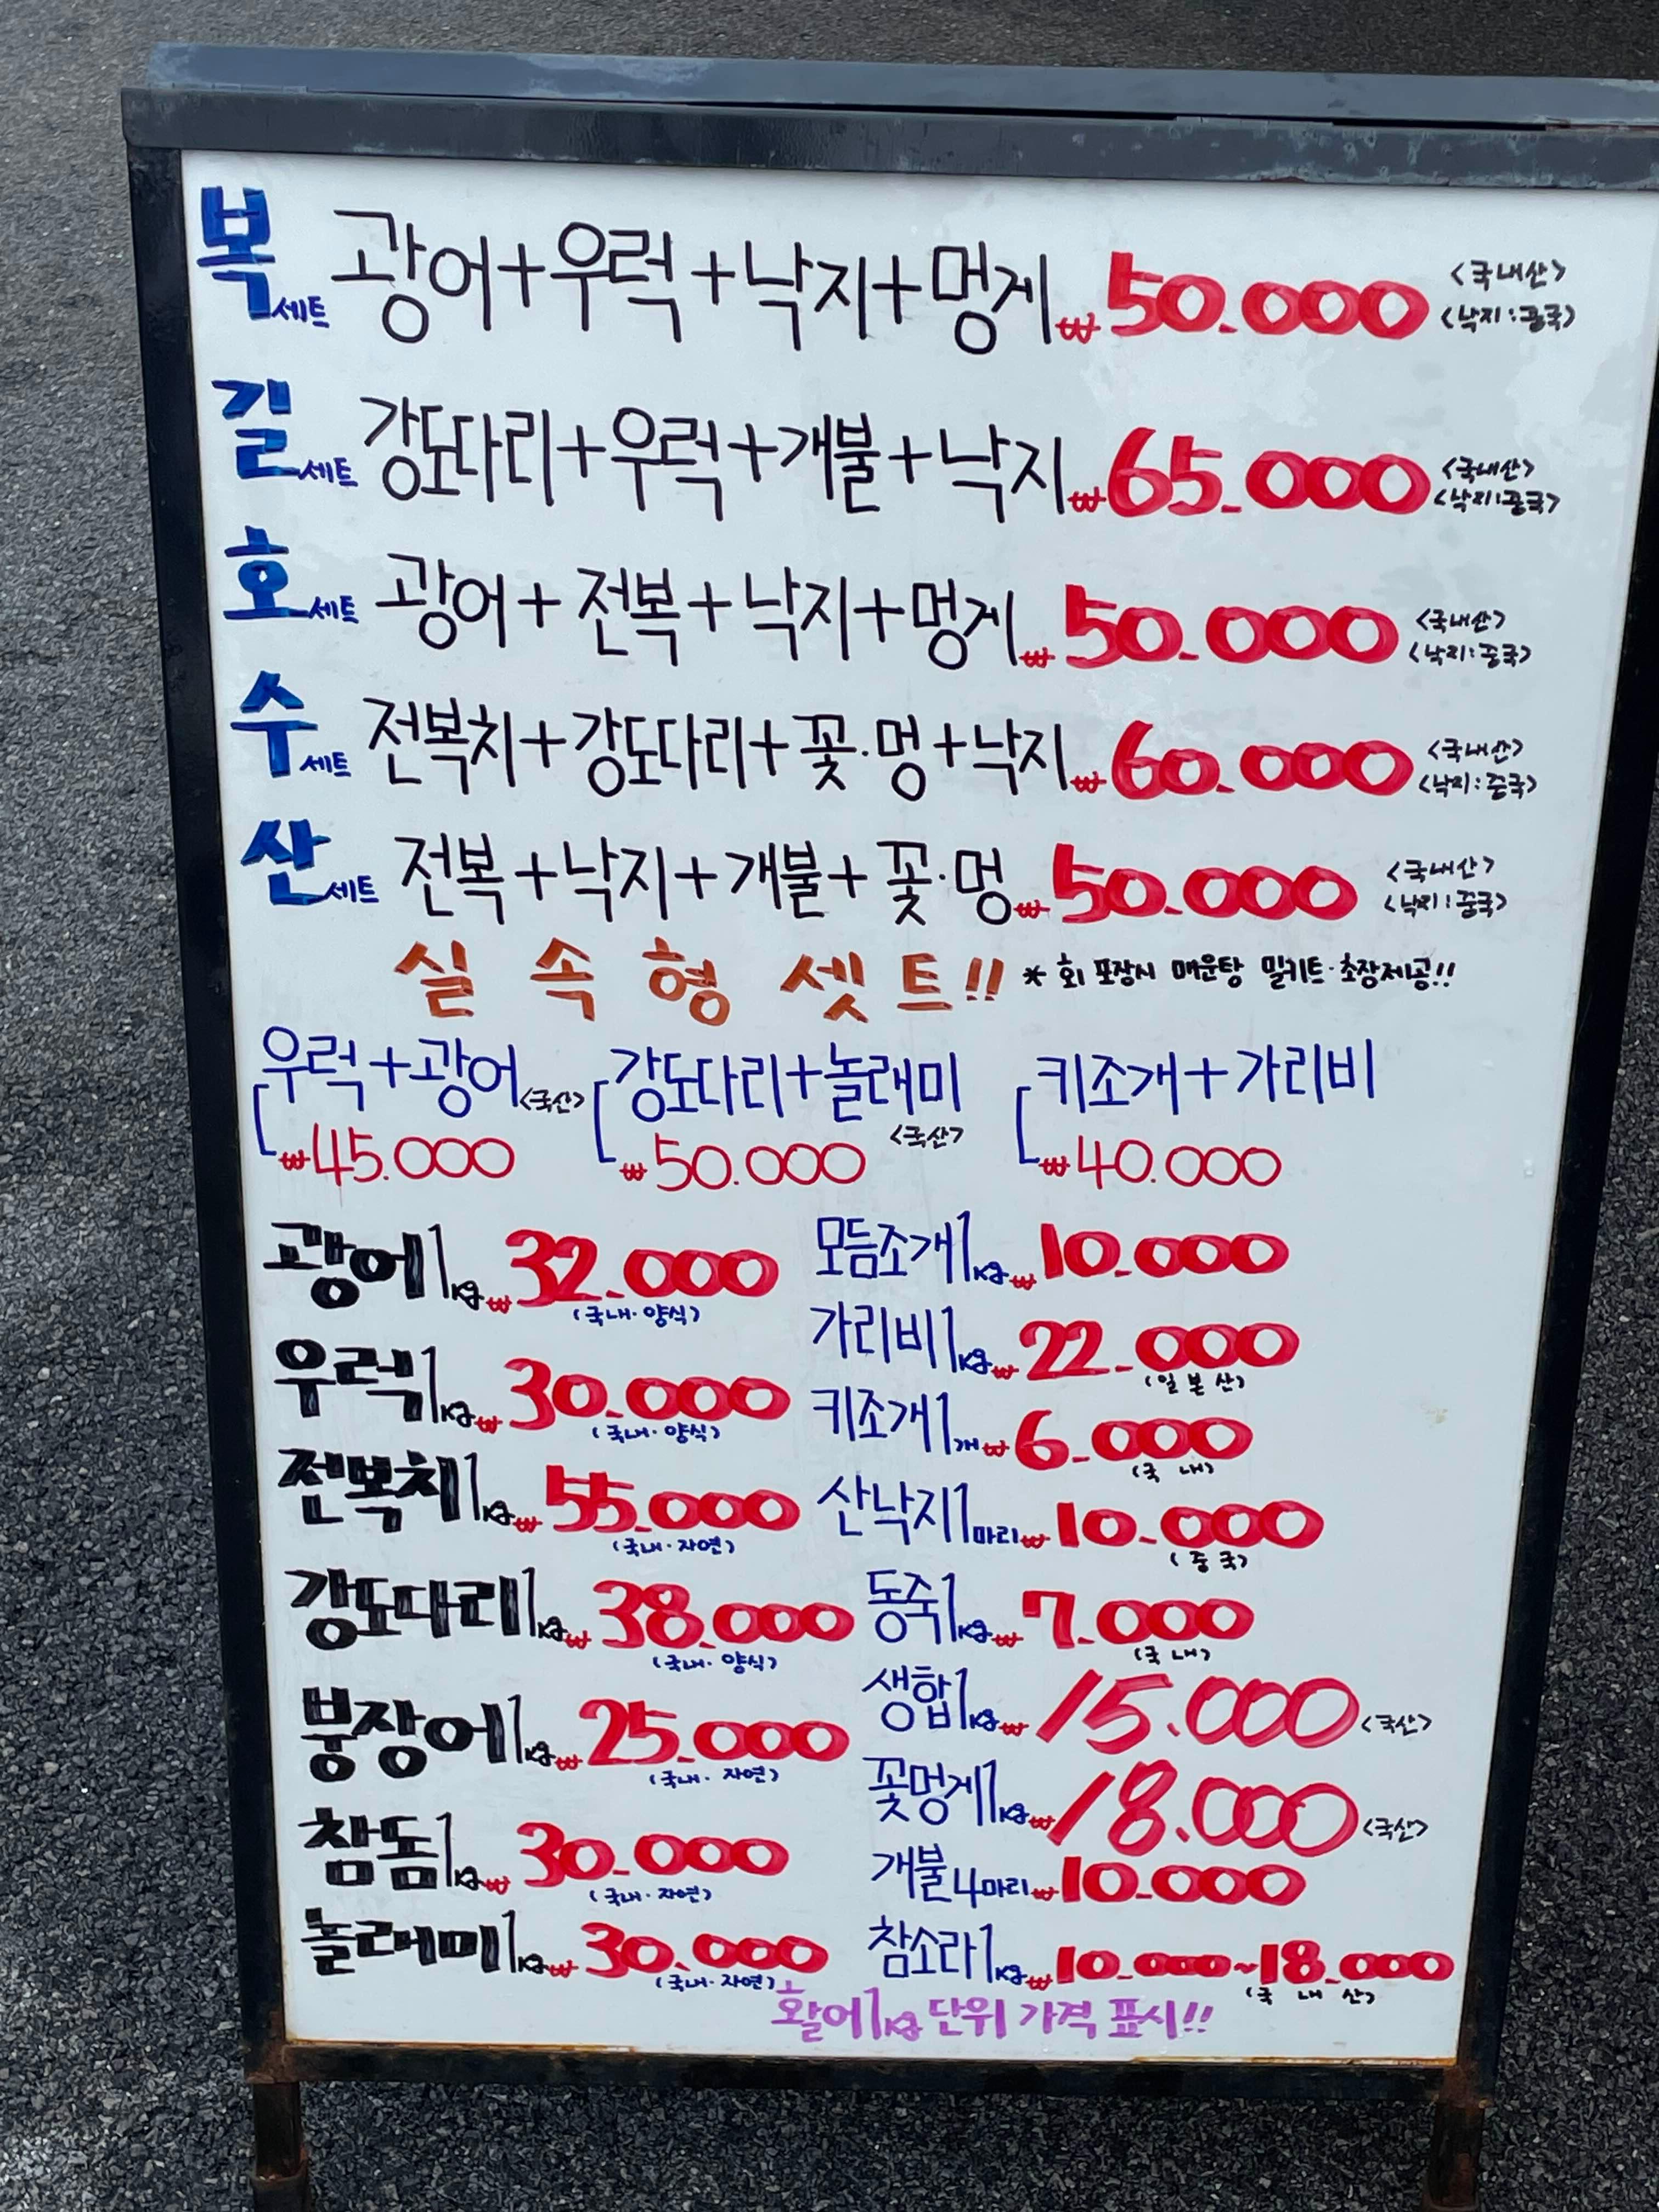 복세트 광어+우럭+낙지+멍게 ₩50.000 <국내산> <낙지:중국>
길세트 강도다리+우럭+개불+낙지 ₩65.000 <국내산> <낙지:중국>
호세트 광어+전복+낙지+멍게 ₩50.000 <국내산> <낙지:중국>
수세트 전복치+강도다리+꽃.멍+낙지 ₩60.000 <국내산> <낙지:중국>
산세트 전복+낙지+개불+꽃.멍 ₩50.000 <국내산> <낙지:중국>
실속형 셋트!! * 회 포장시 매운탕 밀키트·초장제공!!
우럭+광어 <국산> ₩45.000
강도다리+놀래미 <국산> ₩50.000
키조개+가리비 ₩40.000
광어 1kg ₩32.000 (국내·양식)
우럭 1kg ₩30.000 (국내·양식)
전복치 1kg ₩55.000 (국내·자연)
강도다리 1kg ₩38.000 (국내·양식)
붕장어 1kg ₩25.000 (국내·자연)
참돔 1kg ₩30.000 (국내·자연)
놀래미 1kg ₩30.000 (국내·자연)
모듬조개 1kg ₩10.000
가리비 1kg ₩22.000 (일본산)
키조개 1개 ₩6.000 (국내)
산낙지 1마리 ₩10.000 (중국)
동죽 1kg ₩7.000 (국내)
생합 1kg ₩15.000 <국산>
꽃멍게 1kg ₩18.000 <국산>
개불 4마리 ₩10.000
참소라 1kg ₩10.000~18.000 (국내산)
활어 1kg 단위 가격 표시!!